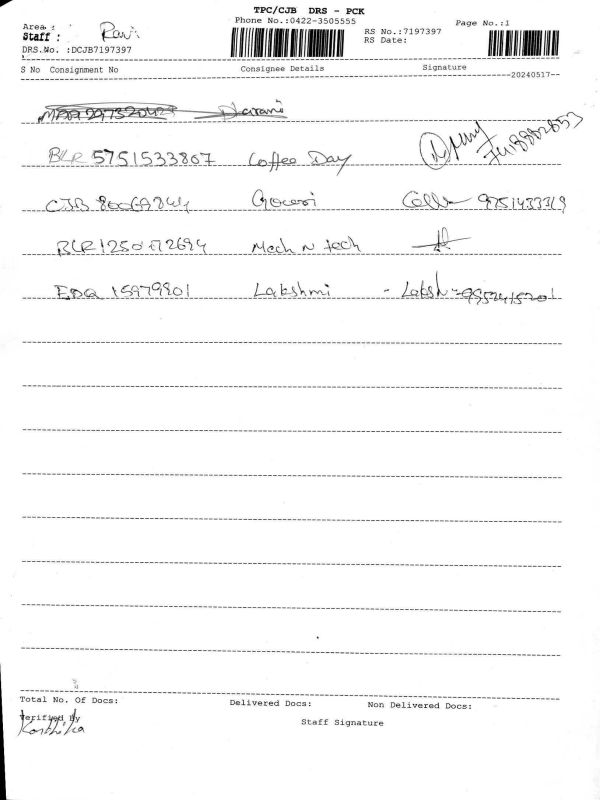 TPC/CJB DRS - PCK
Area :
Phone No.:0422-3505555
Page No.:1
Staff : Ravi
RS No.:7197397
RS Date:
DRS.No. :DCJB7197397
S No Consignment No Consignee Details Signature
20240517
BLR 5751533807 Coffee Day 7418882853
CJB Gowri 9751433319
BLR Mech N tech
EDQ 15979801 Lakshmi - Laksh
Total No. Of Docs: Delivered Docs: Non Delivered Docs:
Verified By
Staff Signature
Karthika